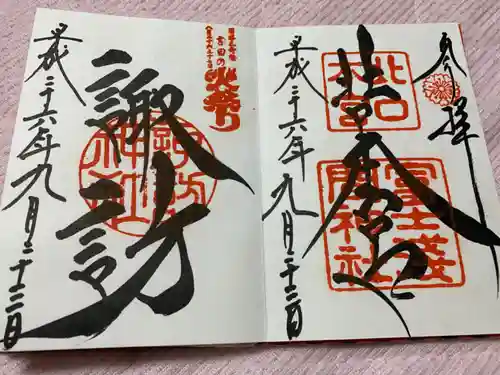 奉拝
北口
本宮
冨士浅
間神社
平成二十六年九月二十三日
日本三奇祭
吉田の
火祭り
諏訪
諏訪
神社
平成二十六年九月二十三日